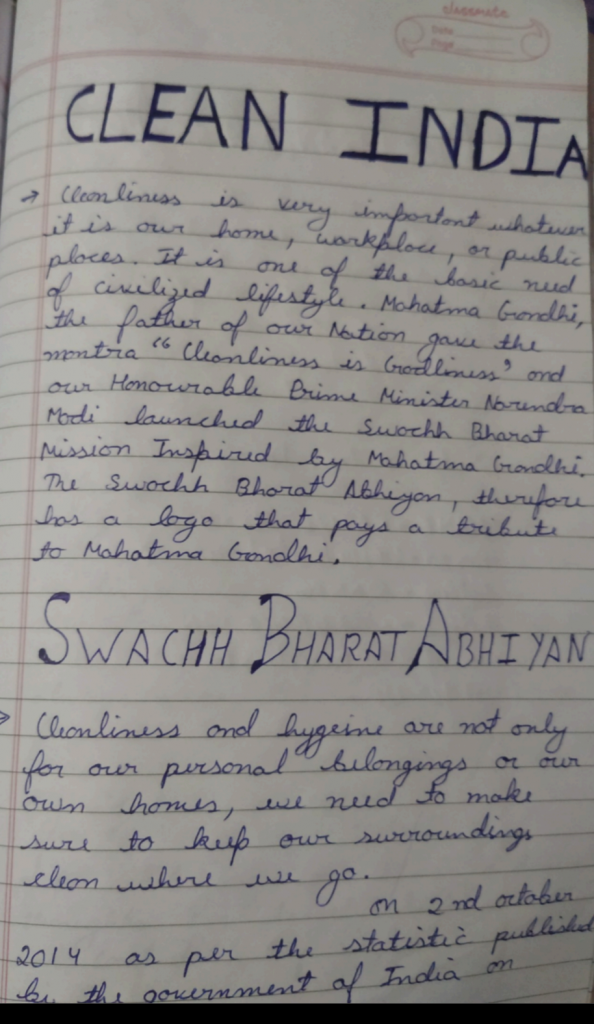 classmate
Date
Page
CLEAN INDIA
→ Cleanliness is very important whatever
it is our home, workplace, or public
places. It is one of the basic need
of civilized lifestyle. Mahatma Gandhi,
the father of our Nation gave the
mantra “Cleanliness is Godliness” and
our Honourable Prime Minister Narendra
Modi launched the Swachh Bharat
Mission Inspired by Mahatma Gandhi.
The Swachh Bharat Abhiyan, therefore
has a logo that pays a tribute
to Mahatma Gandhi.
SWACHH BHARAT ABHIYAN
→ Cleanliness and hygeine are not only
for our personal belongings or our
own homes, we need to make
sure to keep our surroundings
clean where we go.
on 2nd october
2014 as per the statistic published
by the government of India on